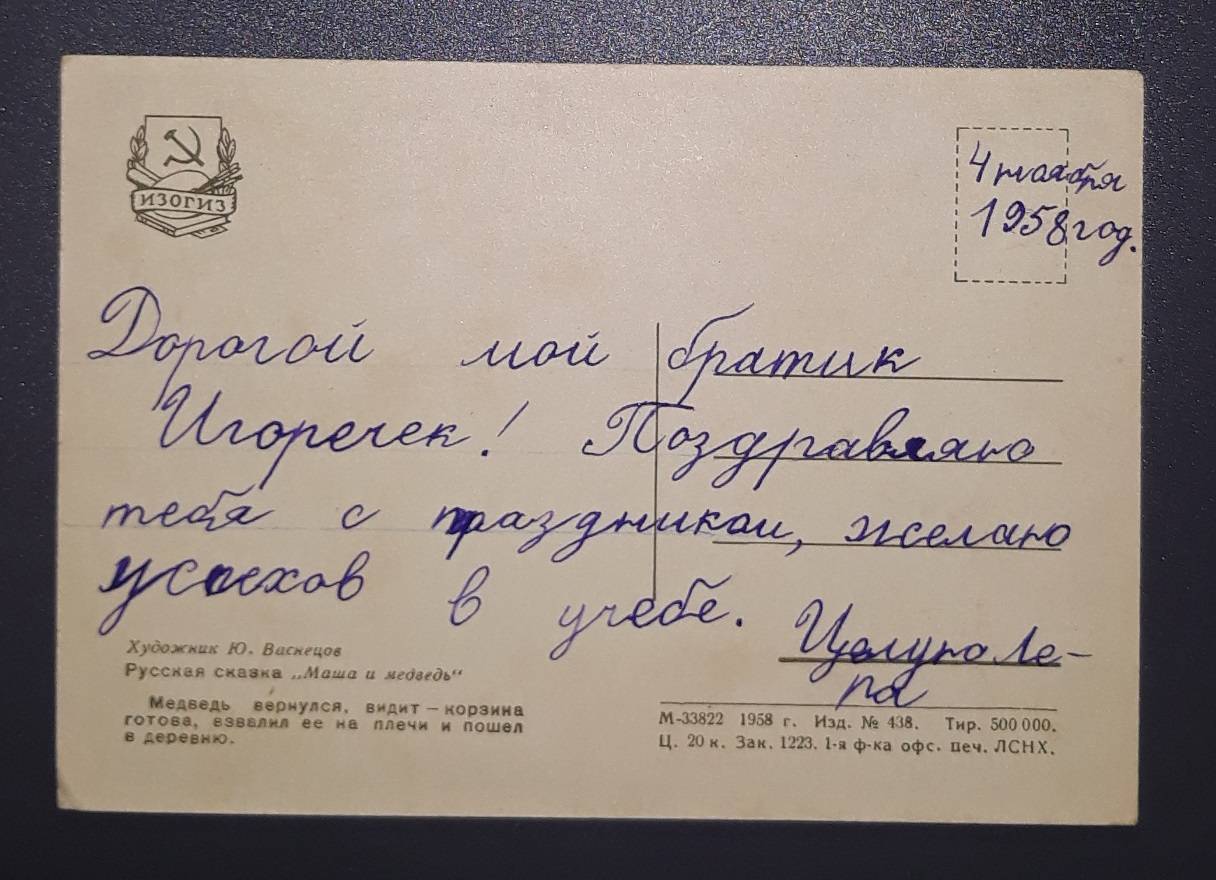 ИЗОГИЗ
4 ноября
1958 год.
Дорогой мой братик
Игоречек! Поздравляю
тебя с праздником, желаю
успехов в учебе.
Целую Ле-
ра
Художник Ю. Васнецов
Русская сказка „Маша и медведь“
Медведь вернулся, видит — корзина
готова, взвалил ее на плечи и пошел
в деревню.
М-33822 1958 г. Изд. № 438. Тир. 500 000.
Ц. 20 к. Зак. 1223. 1-я ф-ка офс. печ. ЛСНХ.